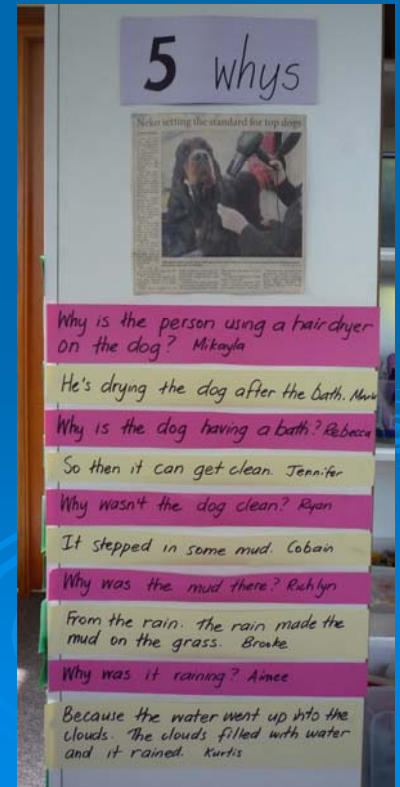 5 whys
Neko setting the standard for top dogs
Why is the person using a hairdryer
on the dog? Mikayla
He's drying the dog after the bath.
Why is the dog having a bath? Rebecca
So then it can get clean. Jennifer
Why wasn't the dog clean? Ryan
It stepped in some mud. Cobain
Why was the mud there? Richlyn
From the rain. the rain made the
mud on the grass. Brooke
Why was it raining? Aimee
Because the water went up into the
clouds. The clouds filled with water
and it rained. Kurtis